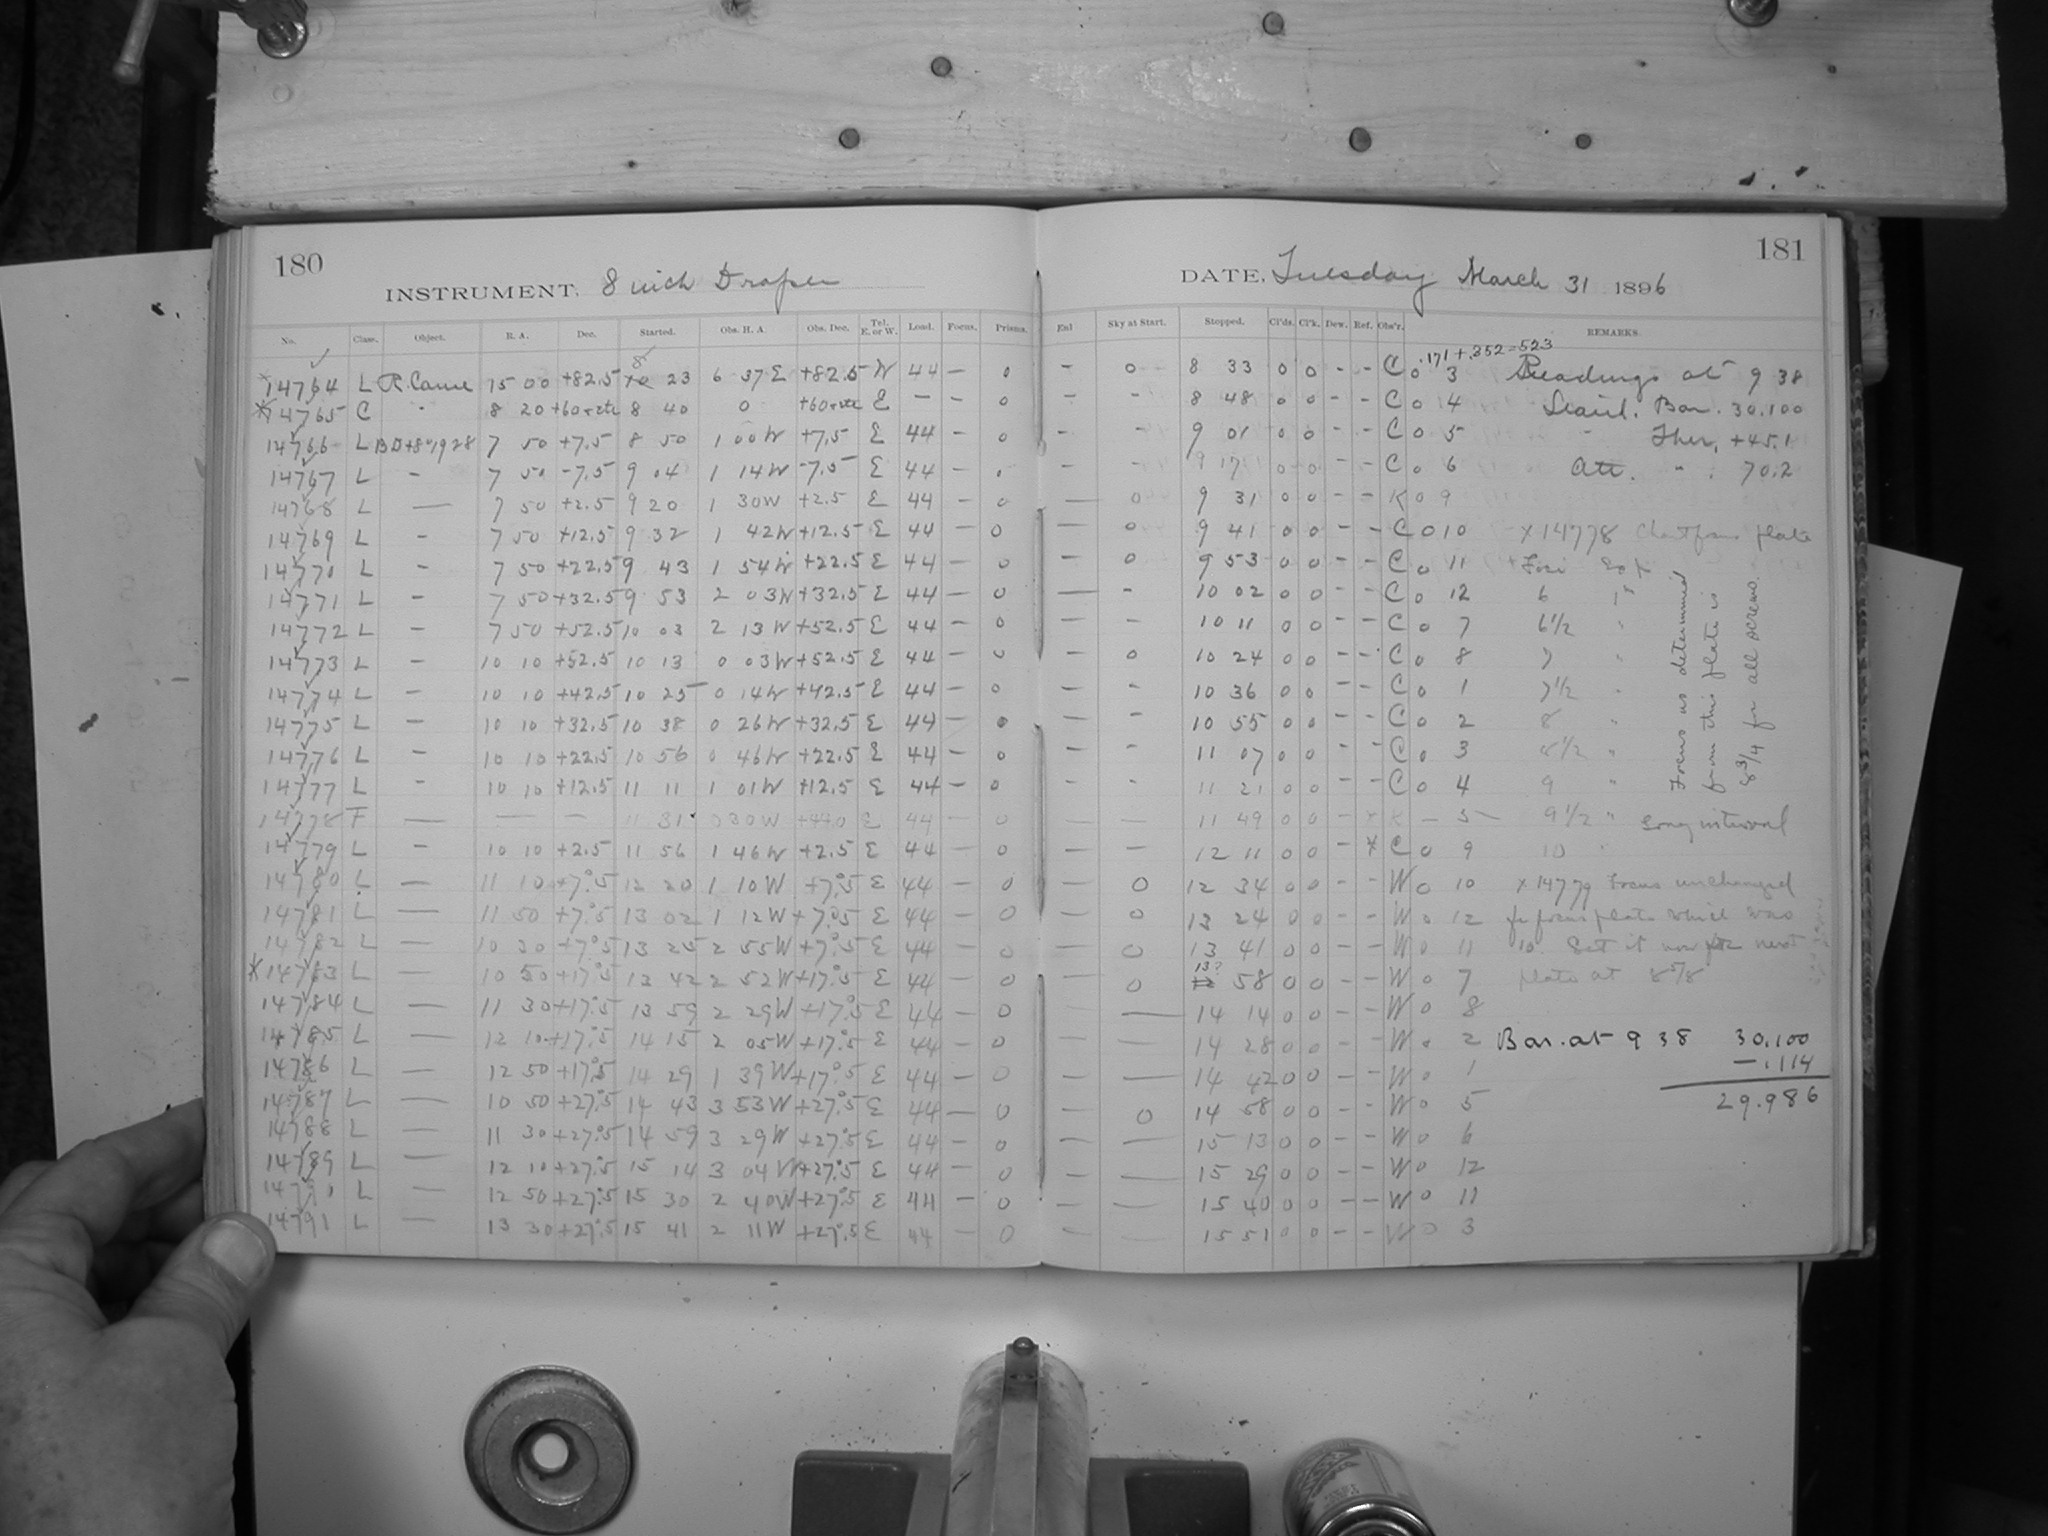 180
INSTRUMENT, 8 inch Draper
No. Class. Object. R. A. Dec. Started. Obs. H. A. Obs. Dec. Tel. E. or W. Load. Focus. Prisms.
14764 L 15 00 +82.5 8 23 6 37 E +82.5 W 44 – 0
14765 C 8 20 8 40 0 E – – 0
14766 L BD+8°1928 7 50 +7.5 8 50 1 00W +7.5 E 44 – 0
14767 L – 7 50 -7.5 9 04 1 14W -7.5 E 44 – 0
14768 L — 7 50 +2.5 9 20 1 30W +2.5 E 44 – 0
14769 L – 7 50 +12.5 9 32 1 42W +12.5 E 44 – 0
14770 L – 7 50 +22.5 9 43 1 54W +22.5 E 44 – 0
14771 L – 7 50 +32.5 9 53 2 03W +32.5 E 44 – 0
14772 L – 7 50 +52.5 10 03 2 13W +52.5 E 44 – 0
14773 L – 10 10 +52.5 10 13 0 03W +52.5 E 44 – 0
14774 L – 10 10 +42.5 10 25 0 14W +42.5 E 44 – 0
14775 L – 10 10 +32.5 10 38 0 26W +32.5 E 44 – 0
14776 L – 10 10 +22.5 10 56 0 46W +22.5 E 44 – 0
14777 L – 10 10 +12.5 11 11 1 01W +12.5 E 44 – 0
14778 F — — — 11 31 0 30W E 44 – 0
14779 L – 10 10 +2.5 11 56 1 46W +2.5 E 44 – 0
14780 L — 11 10 +7°.5 12 20 1 10W +7°.5 E 44 – 0
14781 L — 11 50 +7°.5 13 02 1 12W +7°.5 E 44 – 0
14782 L — 10 30 +7°.5 13 25 2 55W +7°.5 E 44 – 0
*14783 L — 10 50 +17°.5 13 42 2 52W +17°.5 E 44 – 0
14784 L — 11 30 +17°.5 13 59 2 29W +17°.5 E 44 – 0
14785 L — 12 10 +17°.5 14 15 2 05W +17°.5 E 44 – 0
14786 L — 12 50 +17°.5 14 29 1 39W +17°.5 E 44 – 0
14787 L — 10 50 +27°.5 14 43 3 53W +27°.5 E 44 – 0
14788 L — 11 30 +27°.5 14 59 3 29W +27°.5 E 44 – 0
14789 L — 12 10 +27°.5 15 14 3 04W +27°.5 E 44 – 0
14790 L — 12 50 +27°.5 15 30 2 40W +27°.5 E 44 – 0
14791 L — 13 30 +27°.5 15 41 2 11W +27°.5 E 44 – 0
181
DATE, Tuesday March 31 1896
Enl Sky at Start. Stopped. Cl'ds. Cl'k. Dew. Ref. Obs'r. REMARKS.
.171+.352=523
– 0 8 33 0 0 – – C 0 3 Readings at 9 38
– – 8 48 0 0 – – C 0 4 Bar. 30.100
– – 9 01 0 0 – – C 0 5 Ther. +45.1
– – 9 17 0 0 – – C 0 6 Att. " 70.2
— 0 9 31 0 0 – – K 0 9
— 0 9 41 0 0 – – C 0 10 x 14778 plate
– 0 9 53 0 0 – – C 0 11
— – 10 02 0 0 – – C 0 12 6
– – 10 11 0 0 – – C 0 7 6 1/2 "
– 0 10 24 0 0 – – C 0 8 7 "
– – 10 36 0 0 – – C 0 1 7 1/2 "
– – 10 55 0 0 – – C 0 2 8 "
– – 11 07 0 0 – – C 0 3 8 1/2 "
– – 11 21 0 0 – – C 0 4 9 "
Focus as determined
from this plate is
8 3/4 for all screws
— — 11 49 0 0 – x K – 5 9 1/2 " Long interval
— — 12 11 0 0 – x C 0 9 10 "
— 0 12 34 0 0 – – W 0 10 x 14779 Focus unchanged
— 0 13 24 0 0 – – W 0 12 fr focus plate which was
— 0 13 41 0 0 – – W 0 11 10. Set it now for next
— 0 13? 58 0 0 – – W 0 7 plate at 8 5/8
— — 14 14 0 0 – – W 0 8
— — 14 28 0 0 – – W 0 2 Bar. at 9 38 30.100
— — 14 42 0 0 – – W 0 1 –.114
— 0 14 58 0 0 – – W 0 5 29.986
— — 15 13 0 0 – – W 0 6
— — 15 29 0 0 – – W 0 12
— — 15 40 0 0 – – W 0 11
— — 15 51 0 0 – – W 0 3